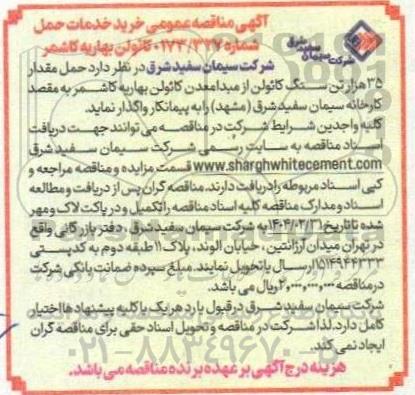 آگهی مناقصه عمومی خرید خدمات حمل
شماره ۰۱۲۳/۳۲۷ کائولن بهاریه کاشمر
شرکت سیمان سفید شرق
شرکت سیمان سفید شرق در نظر دارد حمل مقدار
۳۵ هزار تن سنگ کائولن از مبدا معدن کائولن بهاریه کاشمر به مقصد
کارخانه سیمان سفید شرق (مشهد) را به پیمانکار واگذار نماید.
کلیه واجدین شرایط شرکت در مناقصه می توانند جهت دریافت
اسناد مناقصه به سایت رسمی شرکت سیمان سفید شرق
www.sharghwhitecement.com قسمت مزایده و مناقصه مراجعه و
کپی اسناد مربوطه را دریافت دارند. مناقصه گران پس از دریافت و مطالعه
اسناد و مدارک مناقصه کلیه اسناد مناقصه را تکمیل و در پاکت لاک و مهر
شده تا تاریخ ۱۴۰۴/۰۲/۳۱ به شرکت سیمان سفید شرق، دفتر بازرگانی واقع
در تهران میدان آرژانتین، خیابان الوند، پلاک ۱۱ طبقه دوم به کدپستی
۱۵۱۴۹۴۴۳۳۳ ارسال یا تحویل نمایند. مبلغ سپرده ضمانت بانکی شرکت
در مناقصه ۲,۰۰۰,۰۰۰,۰۰۰ ریال می باشد.
شرکت سیمان سفید شرق در قبول یا رد هر یک یا کلیه پیشنهادها اختیار
کامل دارد. لذا شرکت در مناقصه و تحویل اسناد حقی برای مناقصه گران
ایجاد نمی کند.
۰۲۱-۸۸۳۴۹۶۷۰
هزینه درج آگهی بر عهده برنده مناقصه می باشد.